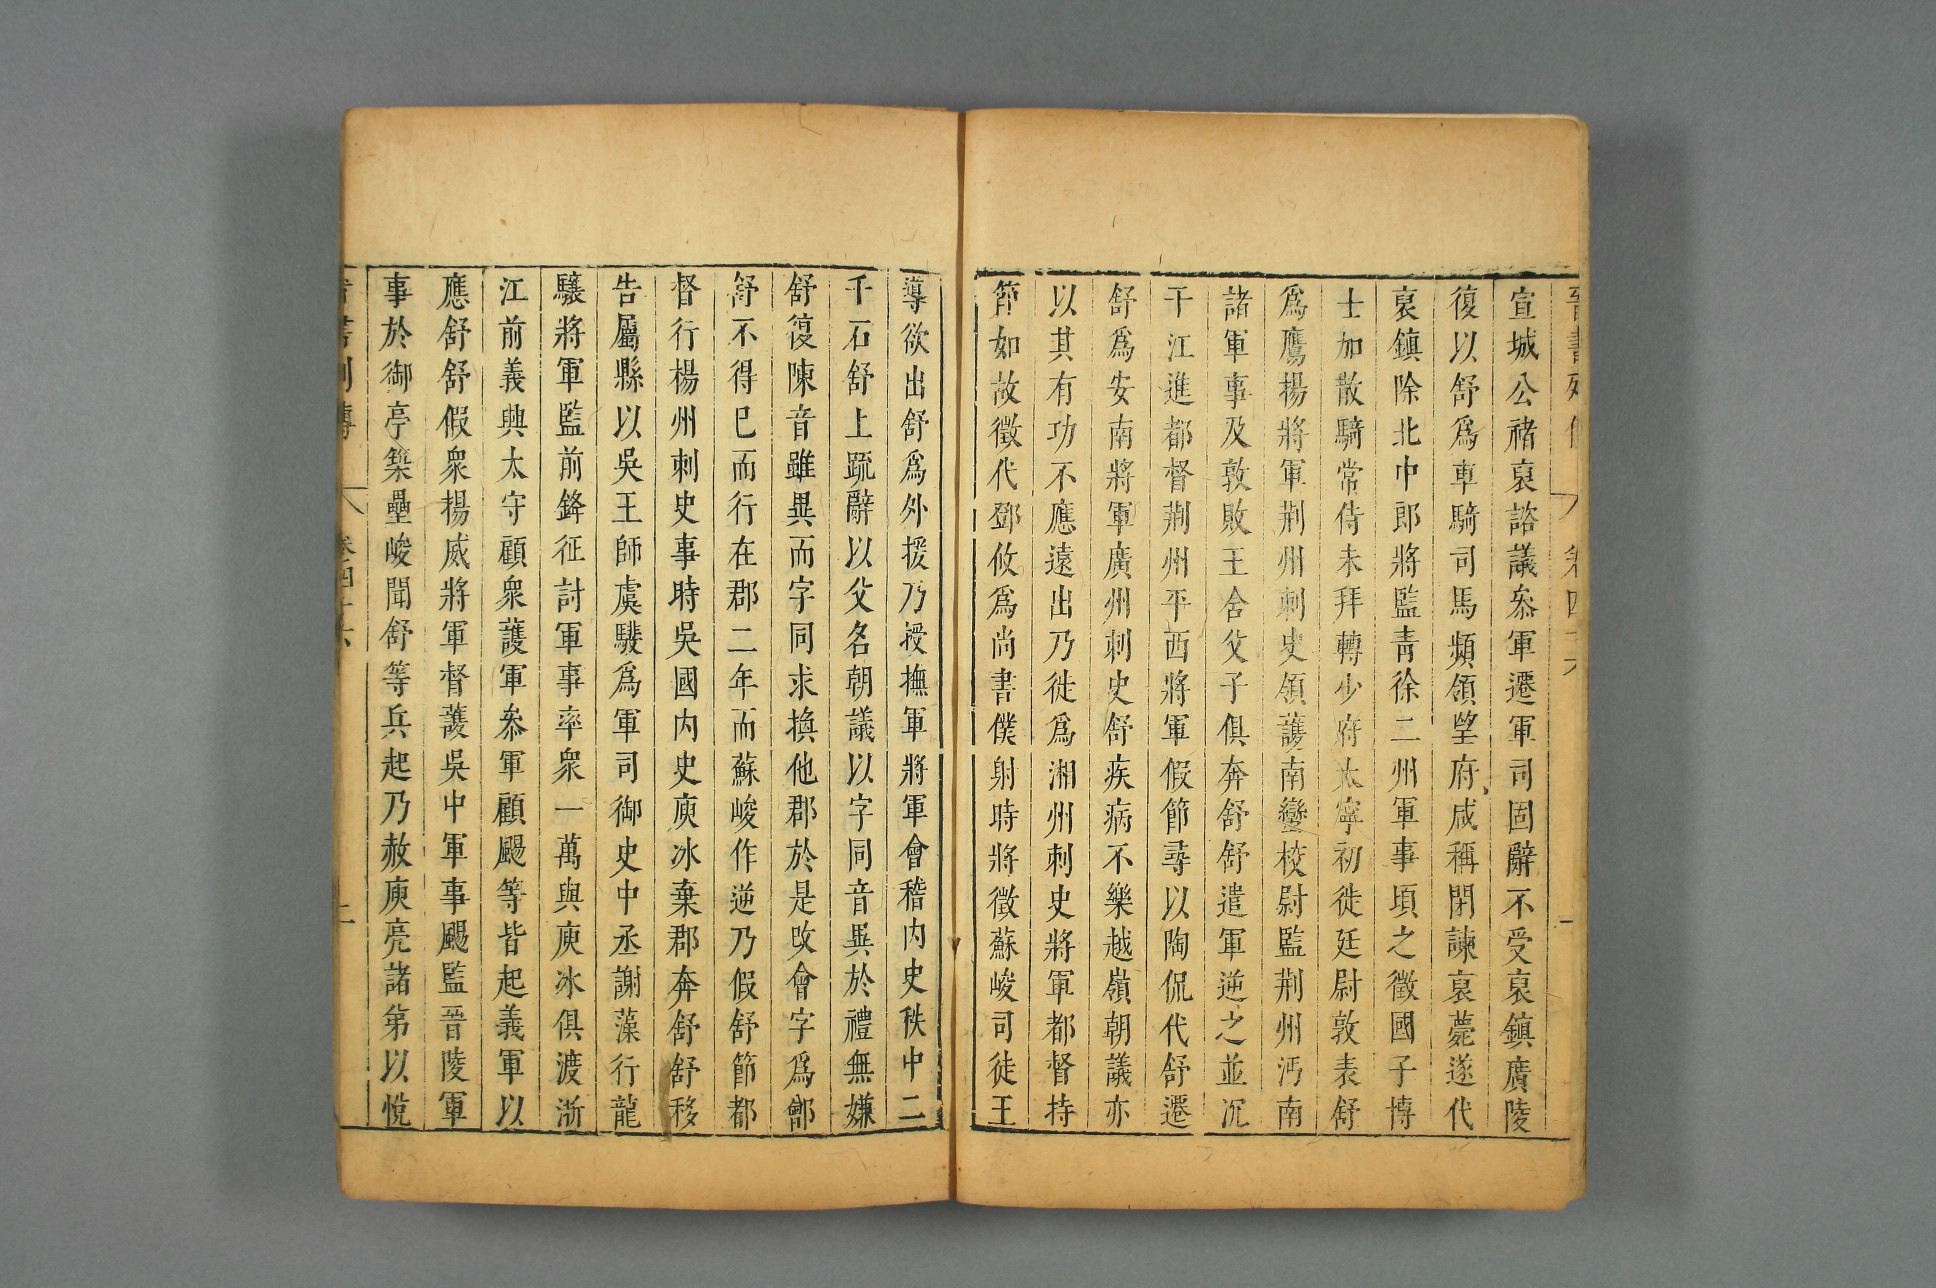 晉書列傳 卷四十六 一
宣城公褚裒諮議叅軍遷軍司固辭不受裒鎮廣陵
復以舒爲車騎司馬頻領望府咸稱閑諫裒薨遂代
裒鎮除北中郎將監青徐二州軍事頃之徵國子博
士加散騎常侍未拜轉少府太寧初徙廷尉敦表舒
爲鷹揚將軍荆州刺史領護南蠻校尉監荆州沔南
諸軍事及敦敗王含父子俱奔舒舒遣軍逆之並沉
于江進都督荆州平西將軍假節尋以陶侃代舒遷
舒爲安南將軍廣州刺史舒疾病不樂越嶺朝議亦
以其有功不應遠出乃徙爲湘州刺史將軍都督持
節如故徵代鄧攸爲尚書僕射時將徵蘇峻司徒王
導欲出舒爲外援乃授撫軍將軍會稽內史秩中二
千石舒上疏辭以父名朝議以字同音異於禮無嫌
舒復陳音雖異而字同求換他郡於是改會字爲鄶
舒不得已而行在郡二年而蘇峻作逆乃假舒節都
督行楊州刺史事時吳國內史庾冰棄郡奔舒舒移
告屬縣以吳王師虞騤爲軍司御史中丞謝藻行龍
驤將軍監前鋒征討軍事率衆一萬與庾冰俱渡浙
江前義興太守顧衆護軍叅軍顧颺等皆起義軍以
應舒舒假衆揚威將軍督護吳中軍事颺監晉陵軍
事於御亭築壘峻聞舒等兵起乃赦庾亮諸第以悅
晉書列傳 卷四十六 二